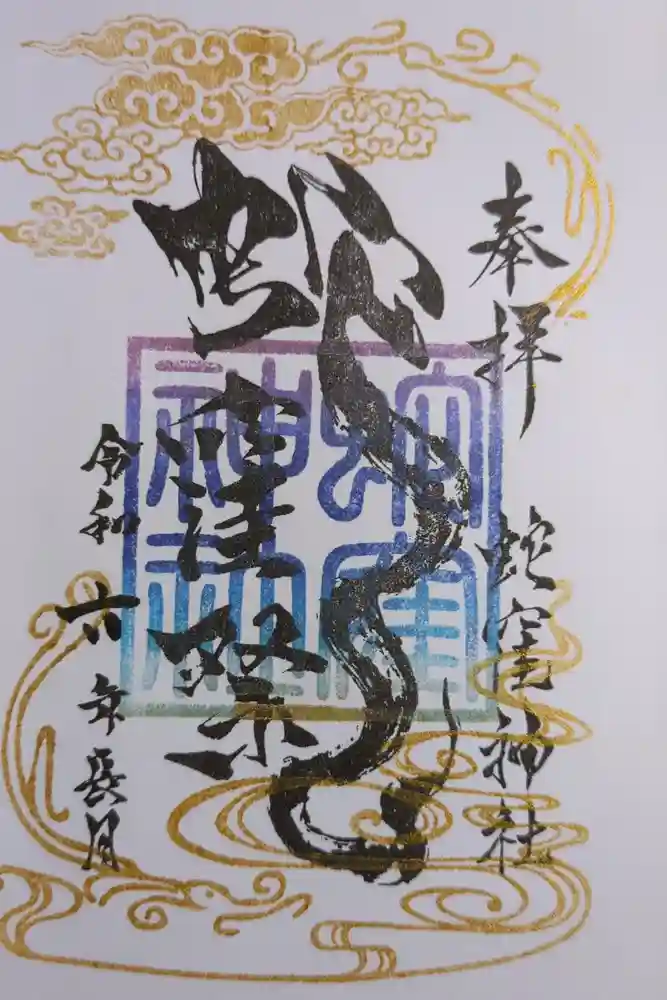 奉拝 蛇窪神社
蛇窪祭
令和六年長月
蛇窪
神社